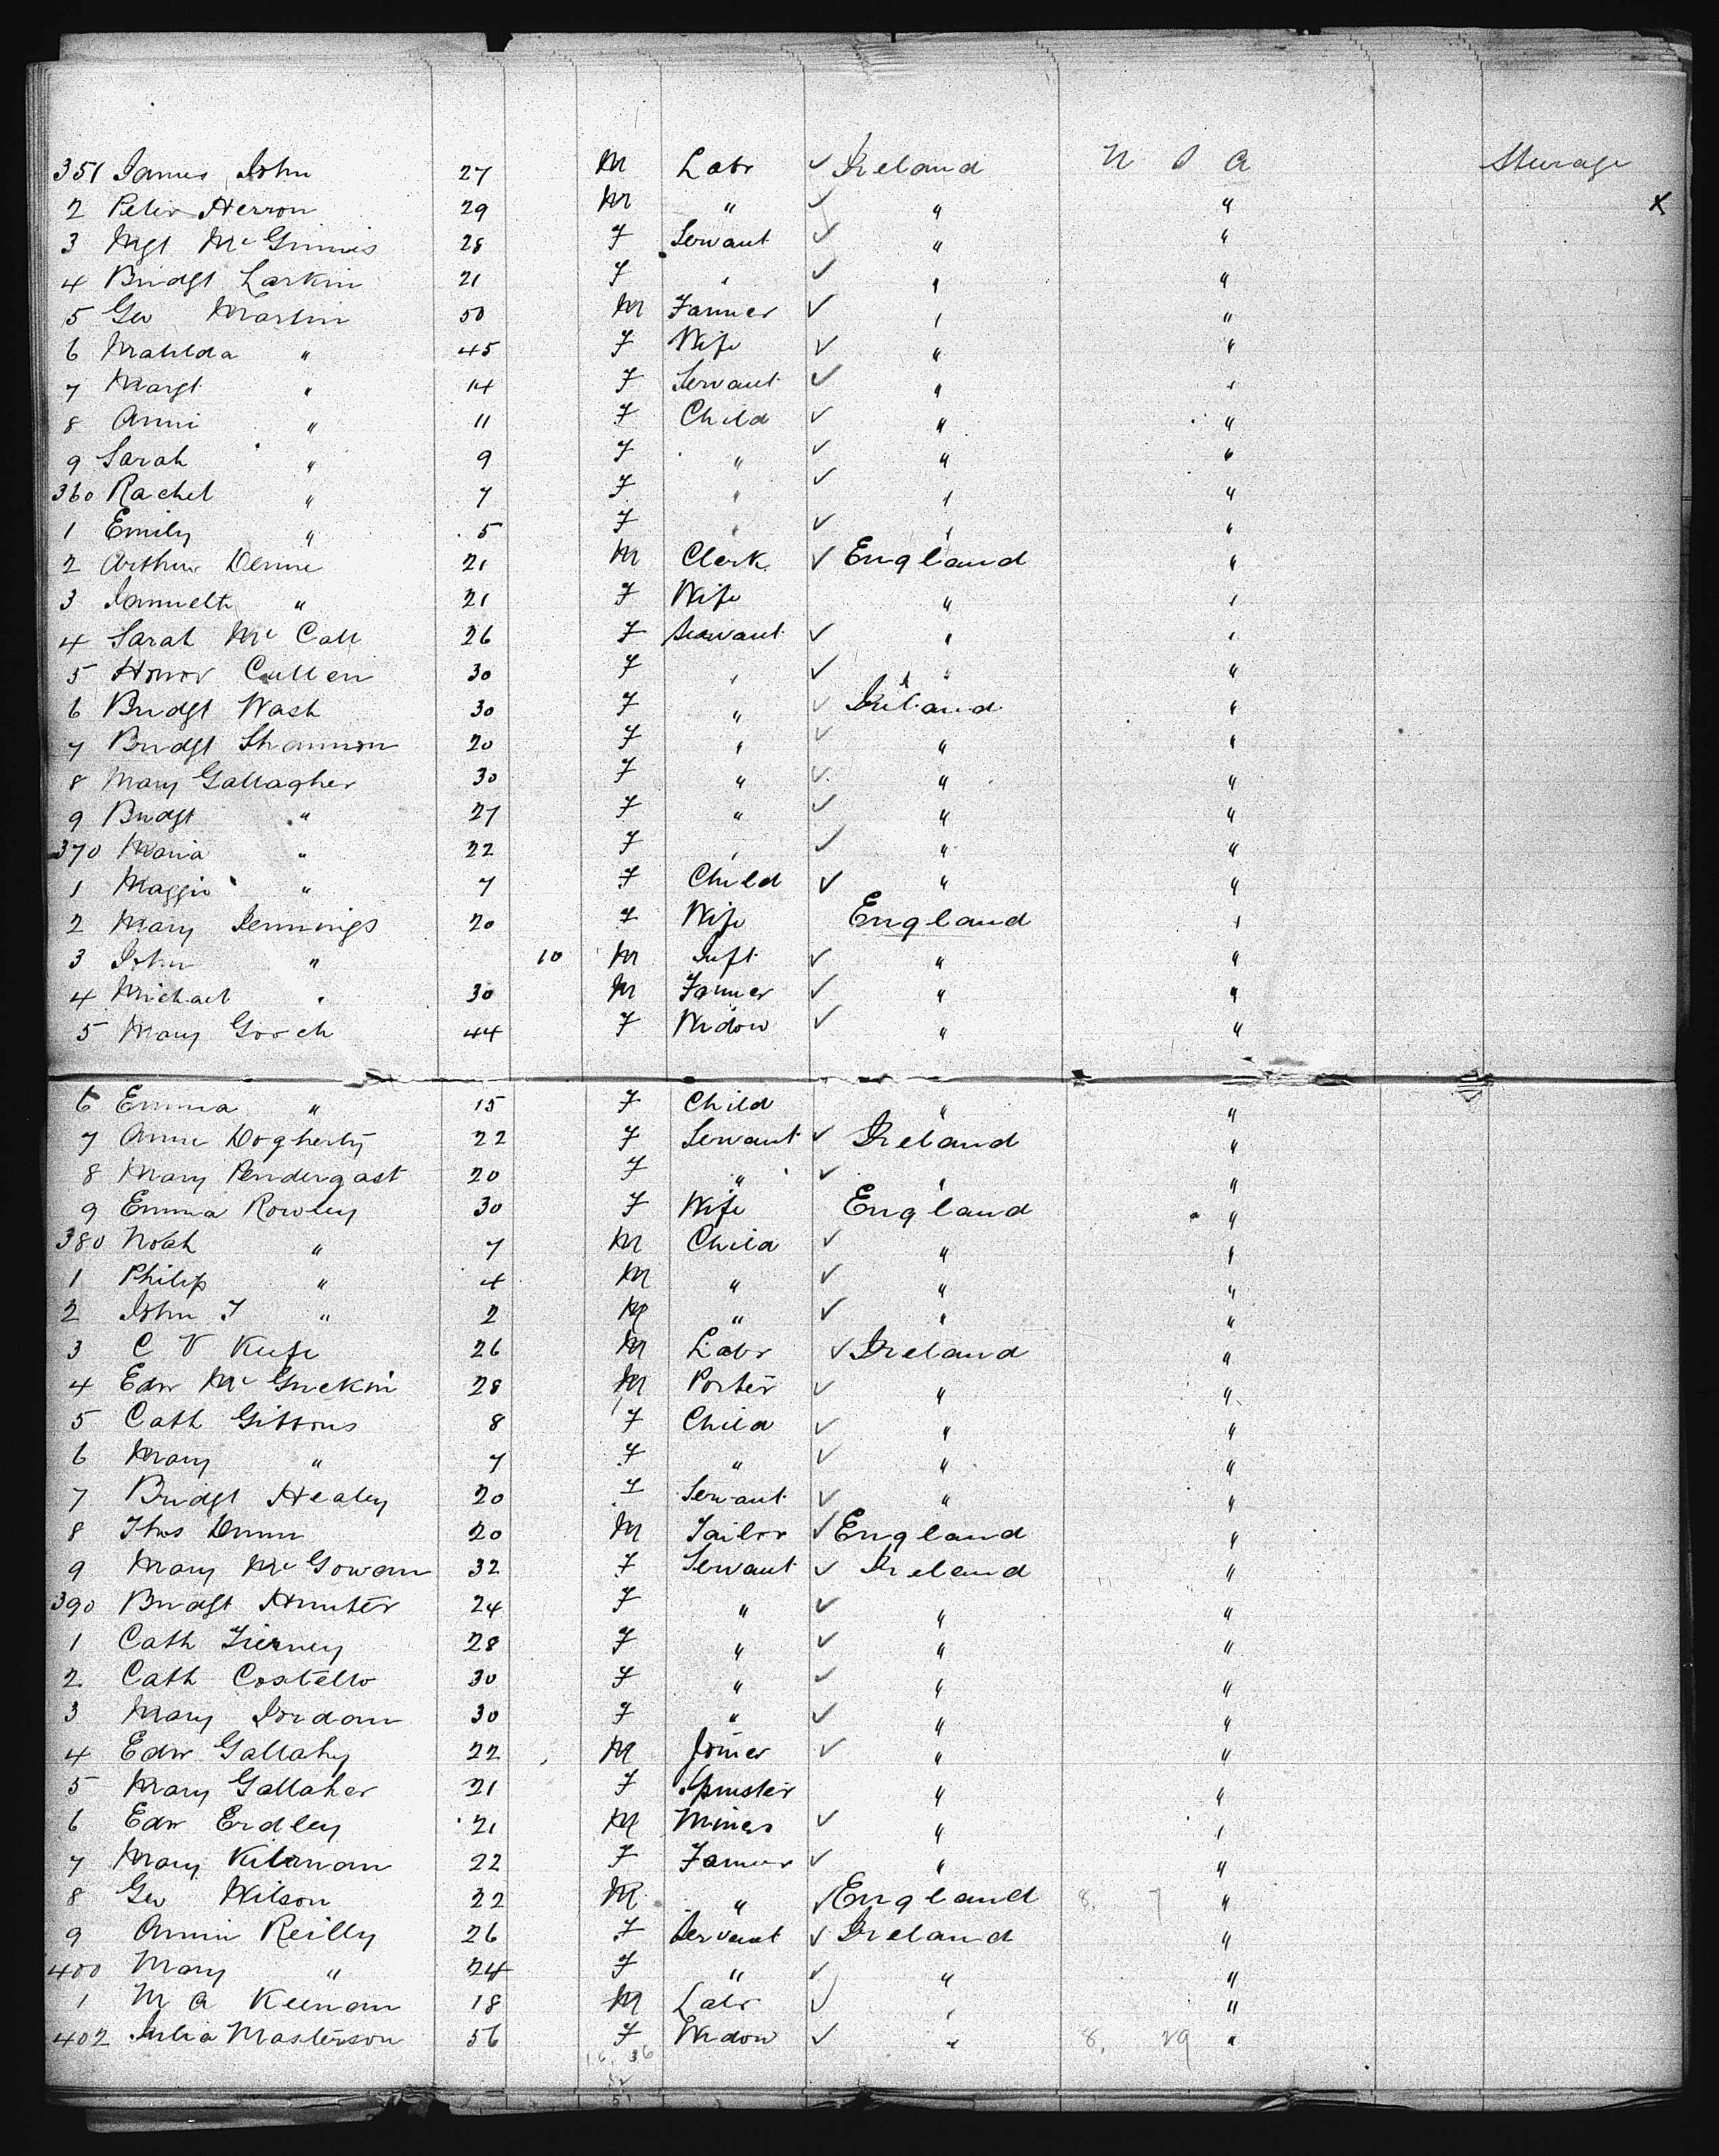 351 James John 27 M Labr ✓ Ireland U S A Steerage
2 Peter Herron 29 M " ✓ " " X
3 Mgt McGinnis 28 F Servant ✓ " "
4 Bridgt Larkin 21 F " ✓ " "
5 Geo Martin 50 M Farmer ✓ " "
6 Matilda " 45 F Wife ✓ " "
7 Margt " 14 F Servant ✓ " "
8 Anni " 11 F Child ✓ " "
9 Sarah " 9 F " ✓ " "
360 Rachel " 7 F " ✓ " "
1 Emily " 5 F " ✓ " "
2 Arthur 21 M Clerk ✓ England "
3 " 21 F Wife " "
4 Sarah McCall 26 F Servant ✓ " "
5 Honor Cullen 30 F " ✓ " "
6 Bridgt Wash 30 F " ✓ Ireland "
7 Bridgt Shannon 20 F " ✓ " "
8 Mary Gallagher 30 F " ✓ " "
9 Bridgt " 27 F " ✓ " "
370 Maria " 22 F " ✓ " "
1 Maggie " 7 F Child ✓ " "
2 Mary Jennings 20 F Wife England "
3 John " 10 M Inft ✓ " "
4 Michael " 30 M Farmer ✓ " "
5 Mary Gooch 44 F Widow ✓ " "
6 Emma " 15 F Child " "
7 Anne Dogherty 22 F Servant ✓ Ireland "
8 Mary Pendergast 20 F " ✓ " "
9 Emma Rowley 30 F Wife England "
380 Noah " 7 M Child ✓ " "
1 Philip " 4 M " ✓ " "
2 John T " 2 M " ✓ " "
3 C V Keefe 26 M Labr ✓ Ireland "
4 Edw McGuckin 28 M Porter ✓ " "
5 Cath Gibbons 8 F Child ✓ " "
6 Mary " 7 F " ✓ " "
7 Bridgt Healey 20 F Servant ✓ " "
8 Thos Dunn 20 M Tailor ✓ England "
9 Mary McGowan 32 F Servant ✓ Ireland "
390 Bridgt Hunter 24 F " ✓ " "
1 Cath Tierney 28 F " ✓ " "
2 Cath Costello 30 F " ✓ " "
3 Mary Jordan 30 F " ✓ " "
4 Edw Gallahy 22 M Joiner ✓ " "
5 Mary Gallaher 21 F Spinster " "
6 Edw Erdley 21 M Miner ✓ " "
7 Mary 22 F Farmer ✓ " "
8 Geo Wilson 22 M " ✓ England 8. 7 "
9 Annie Reilly 26 F Servant ✓ Ireland "
400 Mary " 24 F " ✓ " "
1 M A Keenan 18 M Labr ✓ " "
402 Julia Masterson 56 F Widow ✓ " 8. 29 "
16. 36